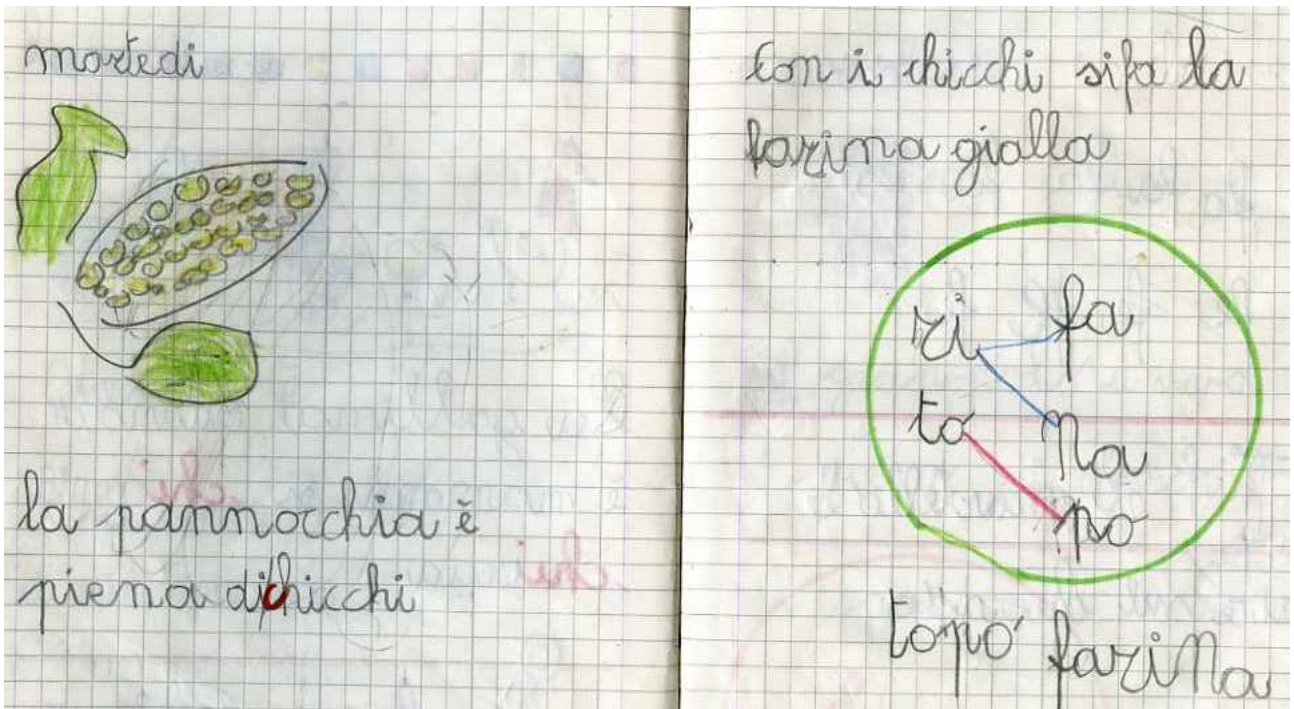 martedi
la pannocchia è
piena di chicchi
con i chicchi si fa la
farina gialla
ri fa
to na
po
topo farina
chi
chi